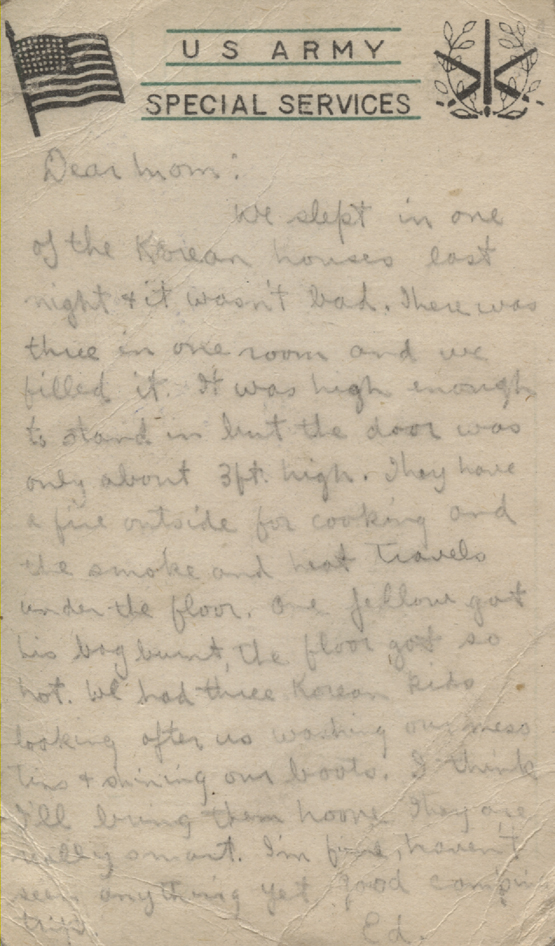 US ARMY
SPECIAL SERVICES
Dear Mom:
We slept in one
of the Korean houses last
night & it wasn't bad. There was
three in one room and we
filled it. It was high enough
to stand in but the door was
only about 3ft. high. They have
a fire outside for cooking and
the smoke and heat travels
under the floor. One fellow got
his bag burnt, the floor got so
hot. We had three Korean kids
looking after us washing our mess
tins & shining our boots. I think
I'll bring them home. They are
really smart. I'm fine, haven't
seen anything yet good camping
trip
Ed.